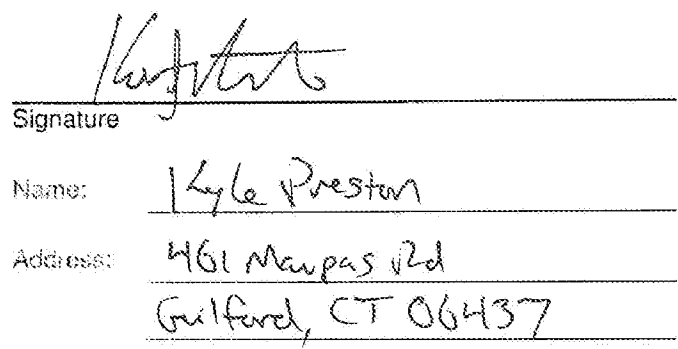 Signature
Name: Kyle Preston
Address: 461 Maupas Rd
Guilford, CT 06437